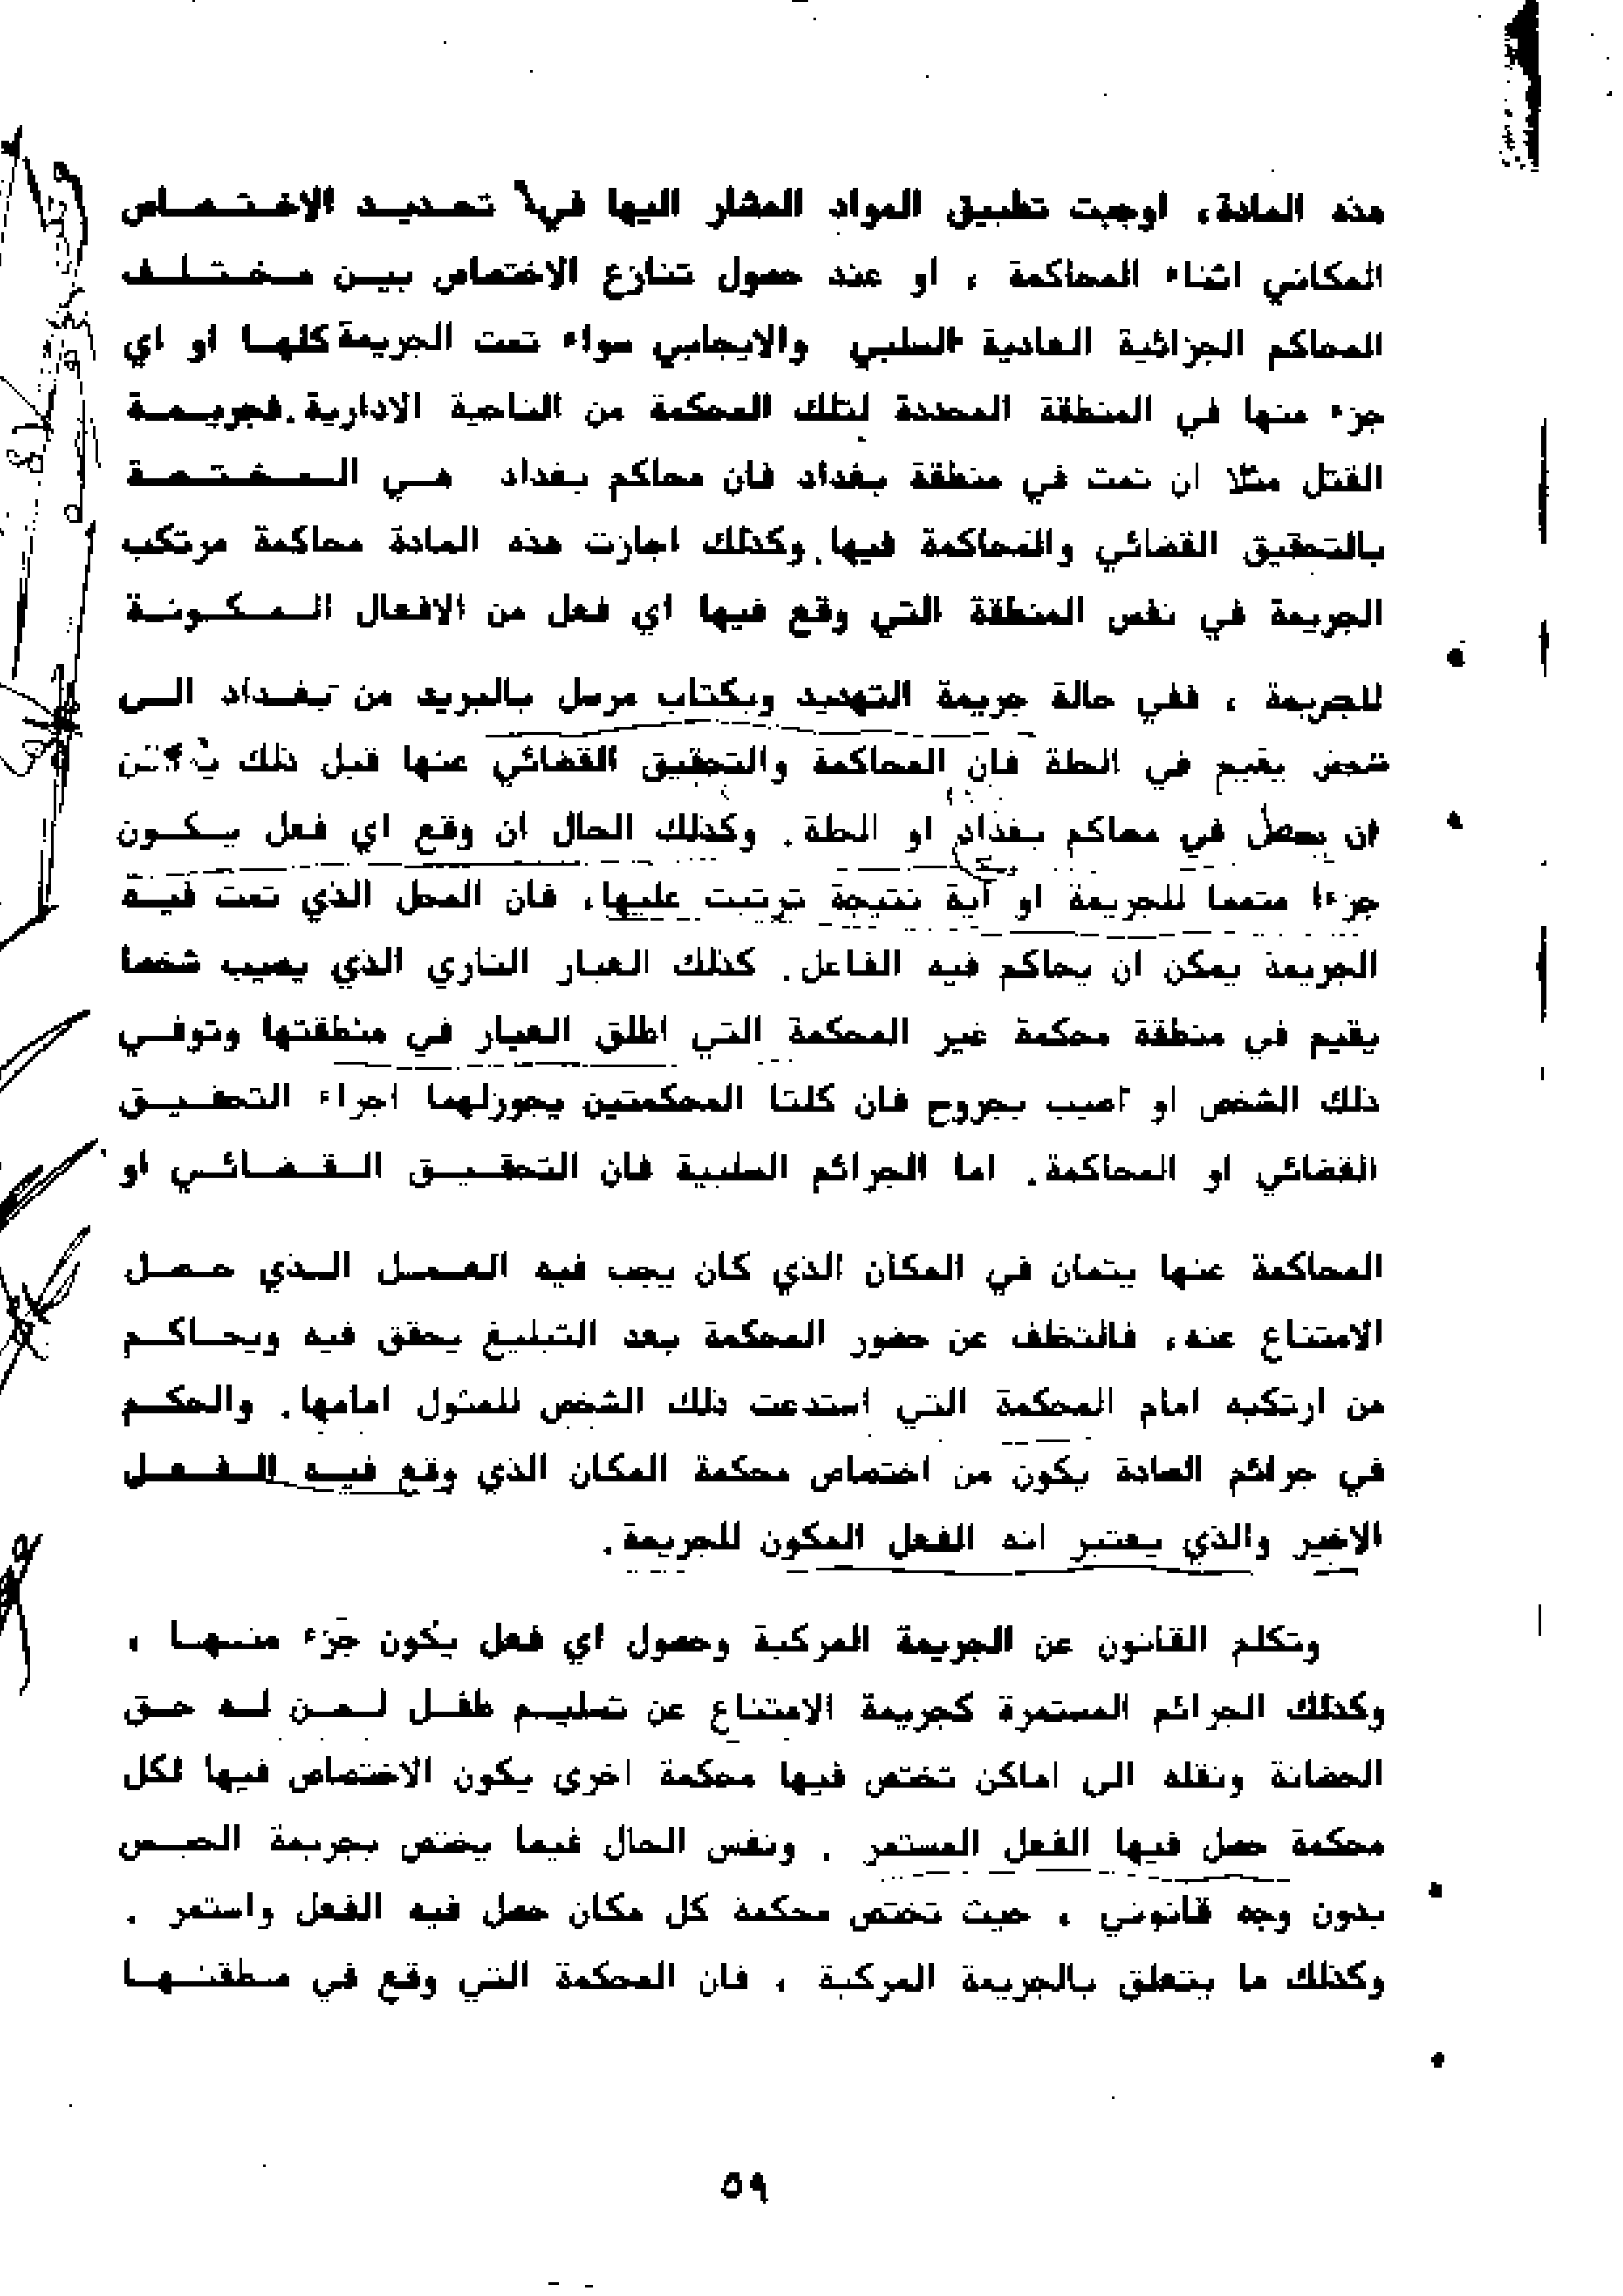 هذه المادة، اوجبت تطبيق المواد المشار اليها في تحديد الاختصاص
المكاني اثناء المحاكمة ، او عند حصول تنازع الاختصاص بين مختلف
المحاكم الجزائية العادية السلبي والايجابي سواء تمت الجريمة كلها او اي
جزء منها في المنطقة المحددة لتلك المحكمة من الناحية الادارية. فجريمة
القتل مثلا ان تمت في منطقة بغداد فان محاكم بغداد هي المختصة
بالتحقيق القضائي والمحاكمة فيها. وكذلك اجازت هذه المادة محاكمة مرتكب
الجريمة في نفس المنطقة التي وقع فيها اي فعل من الافعال المكونة
للجريمة ، ففي حالة جريمة التهديد وبكتاب مرسل بالبريد من بغداد الى
شخص يقيم في الحلة فان المحاكمة والتحقيق القضائي عنها قبل ذلك
ان يحصل في محاكم بغداد او الحلة. وكذلك الحال ان وقع اي فعل يكون
جزءا متمما للجريمة او أية نتيجة ترتبت عليها، فان المحل الذي تمت فيه
الجريمة يمكن ان يحاكم فيه الفاعل. كذلك العيار الناري الذي يصيب شخصا
يقيم في منطقة محكمة غير المحكمة التي اطلق العيار في منطقتها وتوفي
ذلك الشخص او اصيب بجروح فان كلتا المحكمتين يجوزلهما اجراء التحقيق
القضائي او المحاكمة. اما الجرائم السلبية فان التحقيق القضائي او
المحاكمة عنها يتمان في المكان الذي كان يجب فيه العمل الذي حصل
الامتناع عنه، فالتخلف عن حضور المحكمة بعد التبليغ يحقق فيه ويحاكم
من ارتكبه امام المحكمة التي استدعت ذلك الشخص للمثول امامها. والحكم
في جرائم العادة يكون من اختصاص محكمة المكان الذي وقع فيه الفعل
الاخير والذي يعتبر انه الفعل المكون للجريمة.
وتكلم القانون عن الجريمة المركبة وحصول اي فعل يكون جزء منها ،
وكذلك الجرائم المستمرة كجريمة الامتناع عن تسليم طفل لمن له حق
الحضانة ونقله الى اماكن تختص فيها محكمة اخرى يكون الاختصاص فيها لكل
محكمة حصل فيها الفعل المستمر . ونفس الحال فيما يختص بجريمة الحبس
بدون وجه قانوني ، حيث تختص محكمة كل مكان حصل فيه الفعل واستمر .
وكذلك ما يتعلق بالجريمة المركبة ، فان المحكمة التي وقع في منطقتها
٥٩